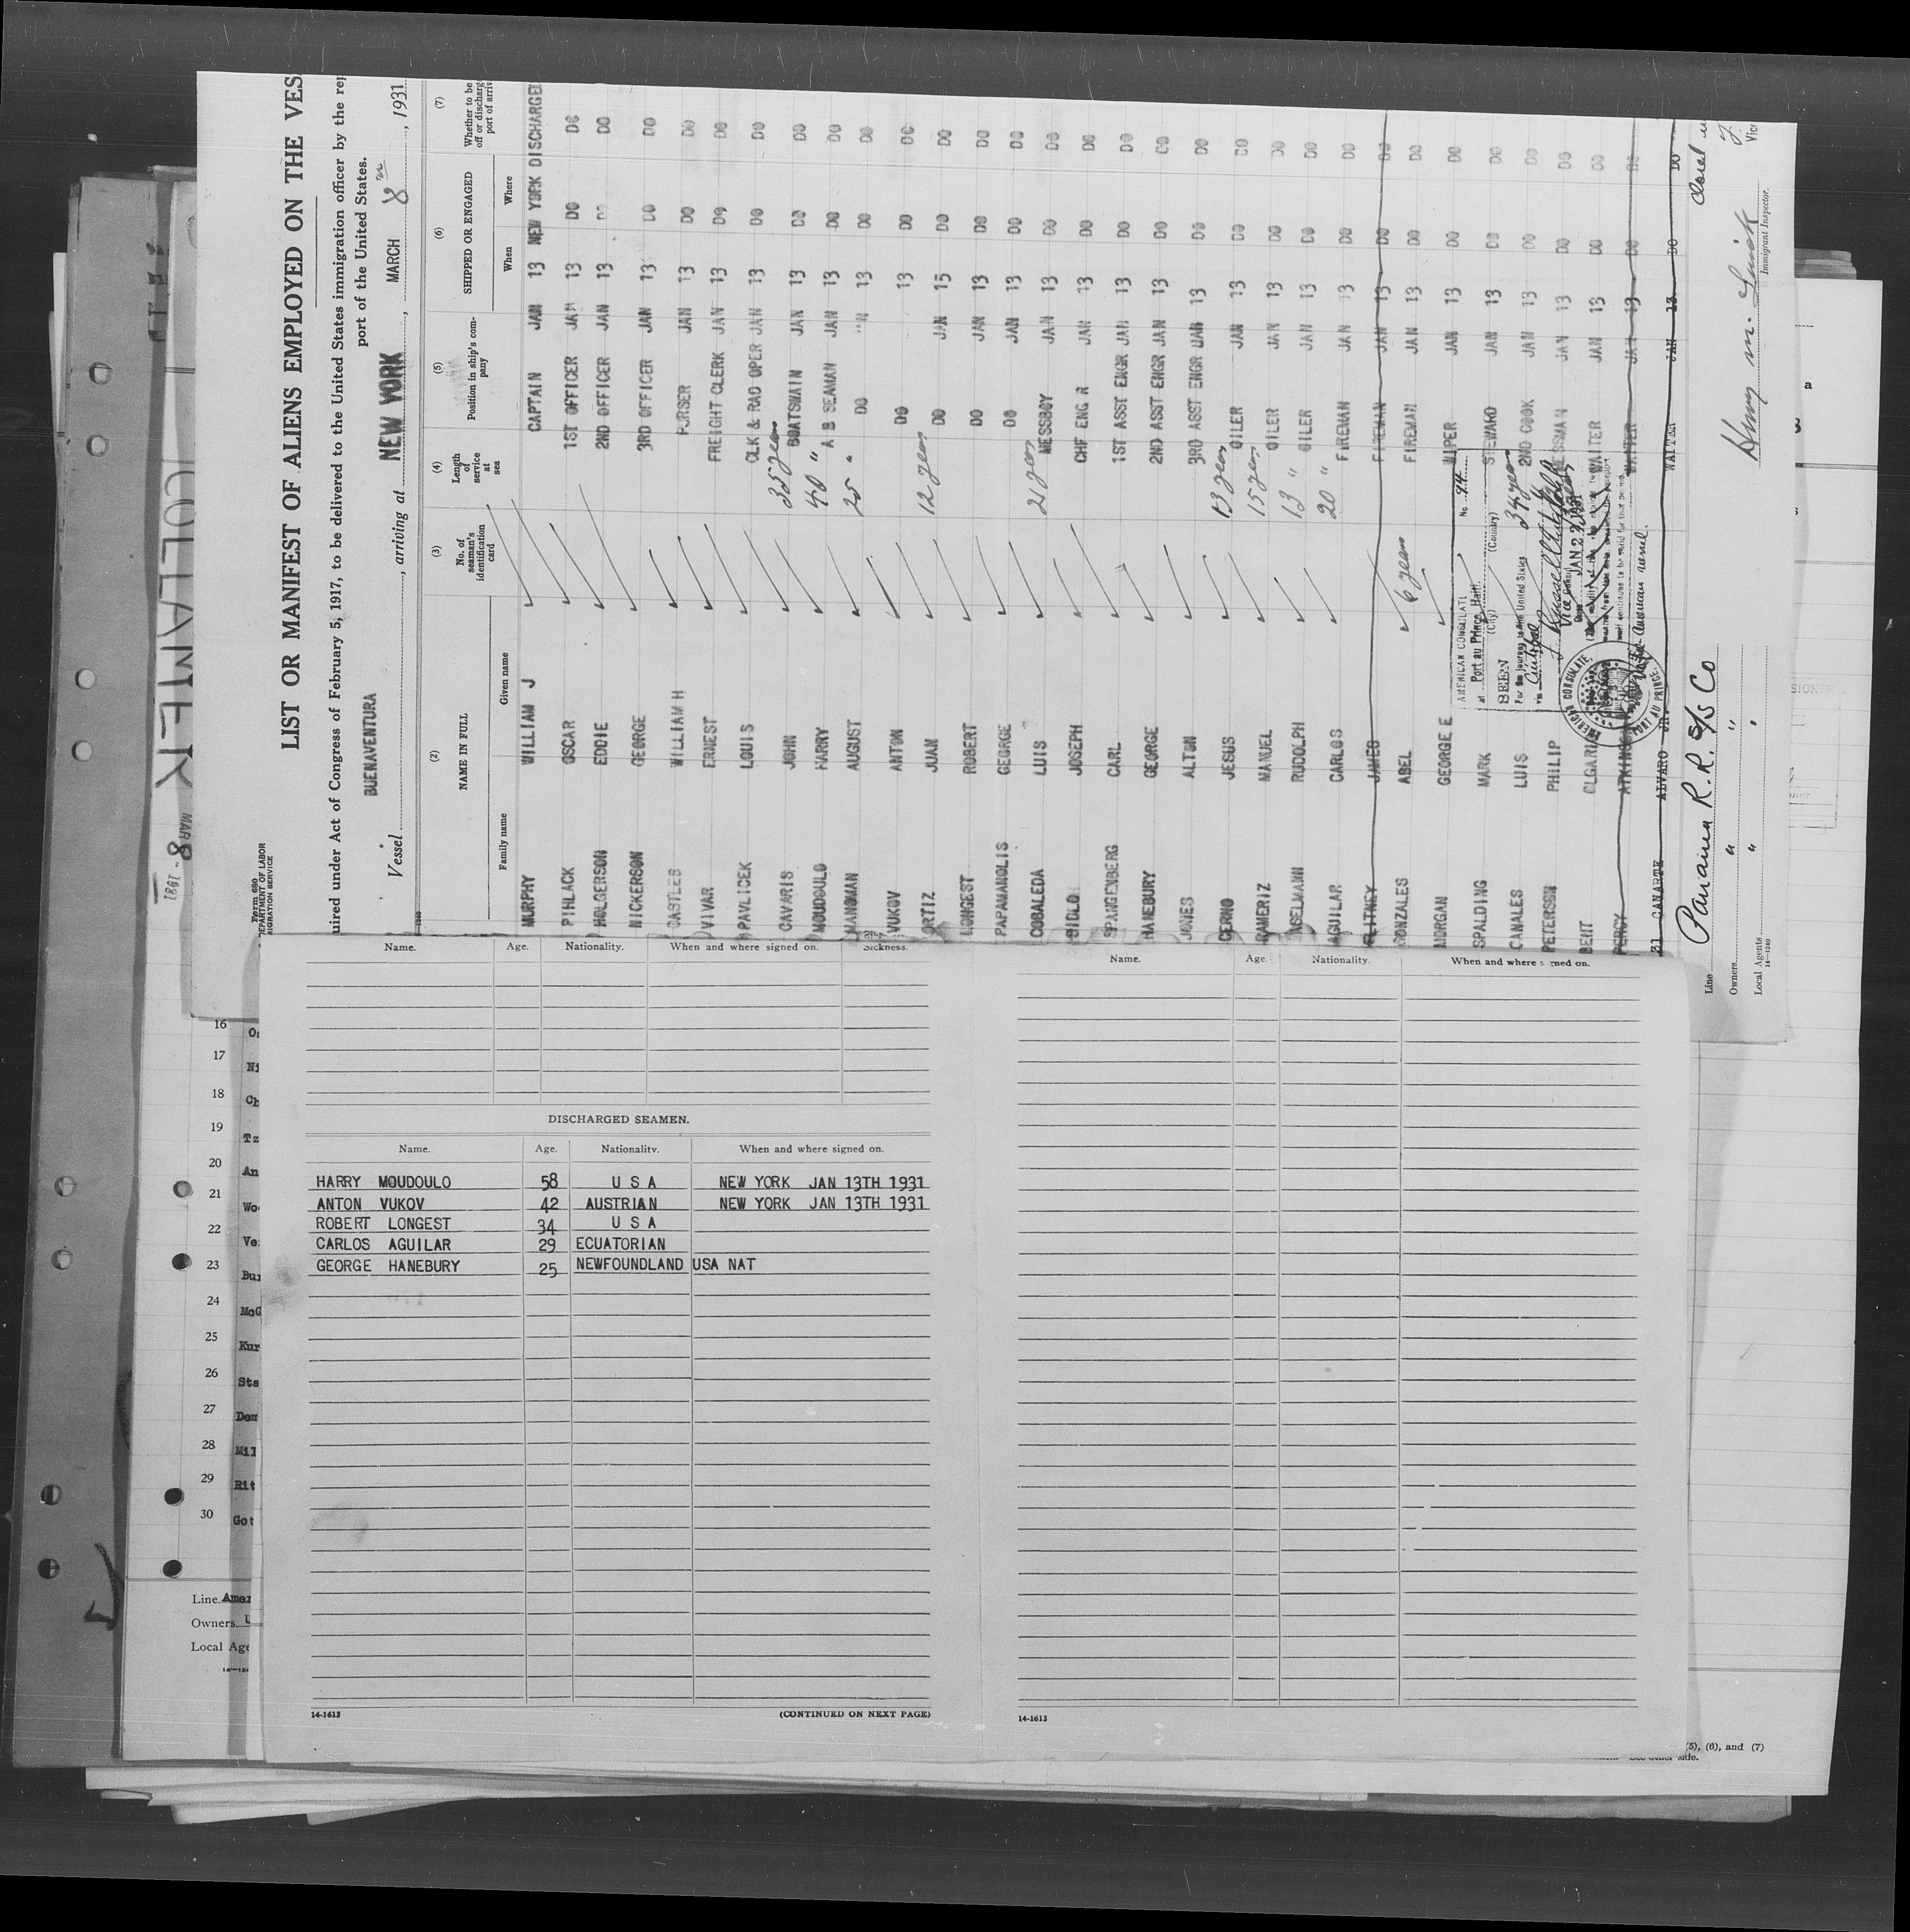 COLLAMER
MAR - 8 1931
Form 680
DEPARTMENT OF LABOR
MIGRATION SERVICE
LIST OR MANIFEST OF ALIENS EMPLOYED ON THE VES
uired under Act of Congress of February 5, 1917, to be delivered to the United States immigration officer by the rep
port of the United States.
Vessel BUENAVENTURA, arriving at NEW YORK, MARCH 8, 1931
(2) (3) (4) (5) (6) (7)
NAME IN FULL
No. of seaman's identification card
Length of service at sea
Position in ship's company
SHIPPED OR ENGAGED
Whether to be
off or discharge
port of arriv
Family name Given name When Where
MURPHY WILLIAM J CAPTAIN JAN 13 NEW YORK DISCHARGED
PIHLACK OSCAR 1ST OFFICER JAN 13 DO DO
HOLGERSON EDDIE 2ND OFFICER JAN 13 DO DO
NICKERSON GEORGE 3RD OFFICER JAN 13 DO DO
CASTLES WILLIAM H PURSER JAN 13 DO DO
VIVAR ERNEST FREIGHT CLERK JAN 13 DO DO
PAVLICEK LOUIS CLK & RAD OPER JAN 13 DO DO
CAVARIS JOHN 35 years BOATSWAIN JAN 13 DO DO
MOUDOULO HARRY 40 " A B SEAMAN JAN 13 DO DO
MANOMAN AUGUST 25 " DO 13 DO DO
VUKOV ANTON DO 13 DO DO
ORTIZ JUAN 12 years DO JAN 15 DO DO
LONGEST ROBERT DO JAN 13 DO DO
PAPAMANOLIS GEORGE DO JAN 13 DO DO
COBALEDA LUIS 21 years MESSBOY JAN 13 DO DO
SIDLO JOSEPH CHF ENG R JAN 13 DO DO
SPANGENBERG CARL 1ST ASST ENGR JAN 13 DO DO
HANEBURY GEORGE 2ND ASST ENGR JAN 13 DO DO
JONES ALTON 3RD ASST ENGR JAN 13 DO DO
CERNO JESUS 13 years OILER JAN 13 DO DO
RAMERIZ MANUEL 15 years OILER JAN 13 DO DO
ASELMANN RUDOLPH 13 " OILER JAN 13 DO DO
AGUILAR CARLOS 20 " FIREMAN JAN 13 DO DO
JAMES FIREMAN JAN 13 DO DO
GONZALES ABEL 6 years FIREMAN JAN 13 DO DO
MORGAN GEORGE E WIPER JAN 13 DO DO
SPALDING MARK STEWARD JAN 13 DO DO
CANALES LUIS 34 years 2ND COOK JAN 13 DO DO
PETERSEN PHILIP MESSMAN JAN 13 DO DO
BENT WAITER JAN 13 DO DO
PERCY ATKINSON WAITER JAN 13 DO DO
31 CANARTE ALVARO JR WAITER JAN 13 DO DO
AMERICAN CONSULATE
at Port au Prince, Haiti.
No 94
(City) (Country)
SEEN
For the journey to the United States
via Cristobal
Vice Consul
JAN 22 1931
AMERICAN CONSULATE
PORT AU PRINCE
Line Panama R. R. S/S Co
Owners " "
Local Agents " "
14-1240
Immigrant Inspector.
Name. Age. Nationality. When and where signed on. Sickness.
DISCHARGED SEAMEN.
Name. Age. Nationality. When and where signed on.
HARRY MOUDOULO 58 U S A NEW YORK JAN 13TH 1931
ANTON VUKOV 42 AUSTRIAN NEW YORK JAN 13TH 1931
ROBERT LONGEST 34 U S A
CARLOS AGUILAR 29 ECUATORIAN
GEORGE HANEBURY 25 NEWFOUNDLAND USA NAT
14-1613 (CONTINUED ON NEXT PAGE)
Name. Age. Nationality. When and where signed on.
14-1613
16
17 Ni
18 Ch
19 Tz
20 An
21 Wo
22 Ve
23 Bur
24 McG
25 Kur
26 Sta
27 Dem
28 Mil
29 Rit
30 Got
Line Amer
Owners U
Local Age
(5), (6), and (7)
side.